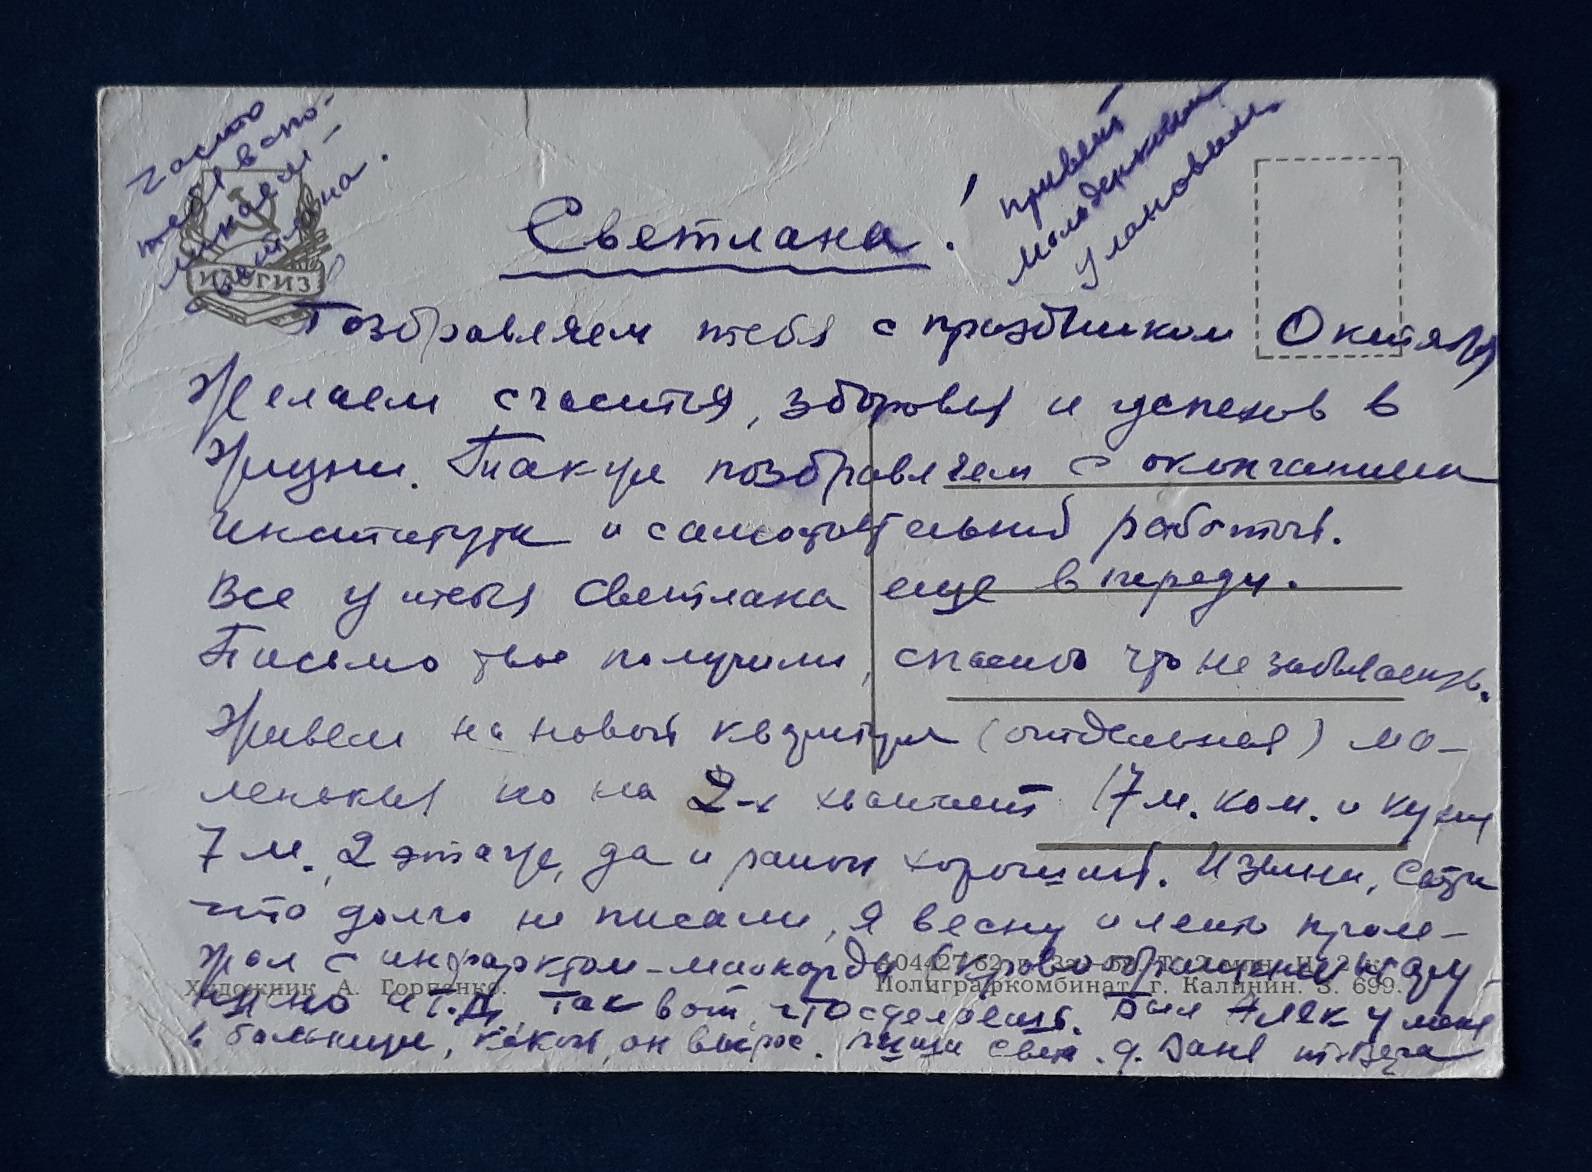 Часто
тебя вспо-
минаем
Светлана.
ИЗОГИЗ
привет
Улановым
Светлана!
Поздравляем тебя с праздником Октября
Желаем счастья, здоровья и успехов в
жизни. Также поздравляем с окончанием
института и самостоятельной работы.
Все у тебя Светлана еще впереди.
Письмо твое получили, спасибо что не забываешь.
Живем на новой квартире (отдельная) ма-
ленькая но на 2-х хватит 17 м. ком. и кухня
7 м., 2 этаже, да и район хороший. Извини, Света
что долго не писали, я весну и лето проле-
жал с инфарктом-миокарда, кровообращение
и т.д, так вот, что сделаешь. Был Алек у меня
в больнице, какой он вырос. пиши Свет. д. Ваня т. Вера
Художник А. Горпенко.
Полиграфкомбинат, г. Калинин. З. 699.